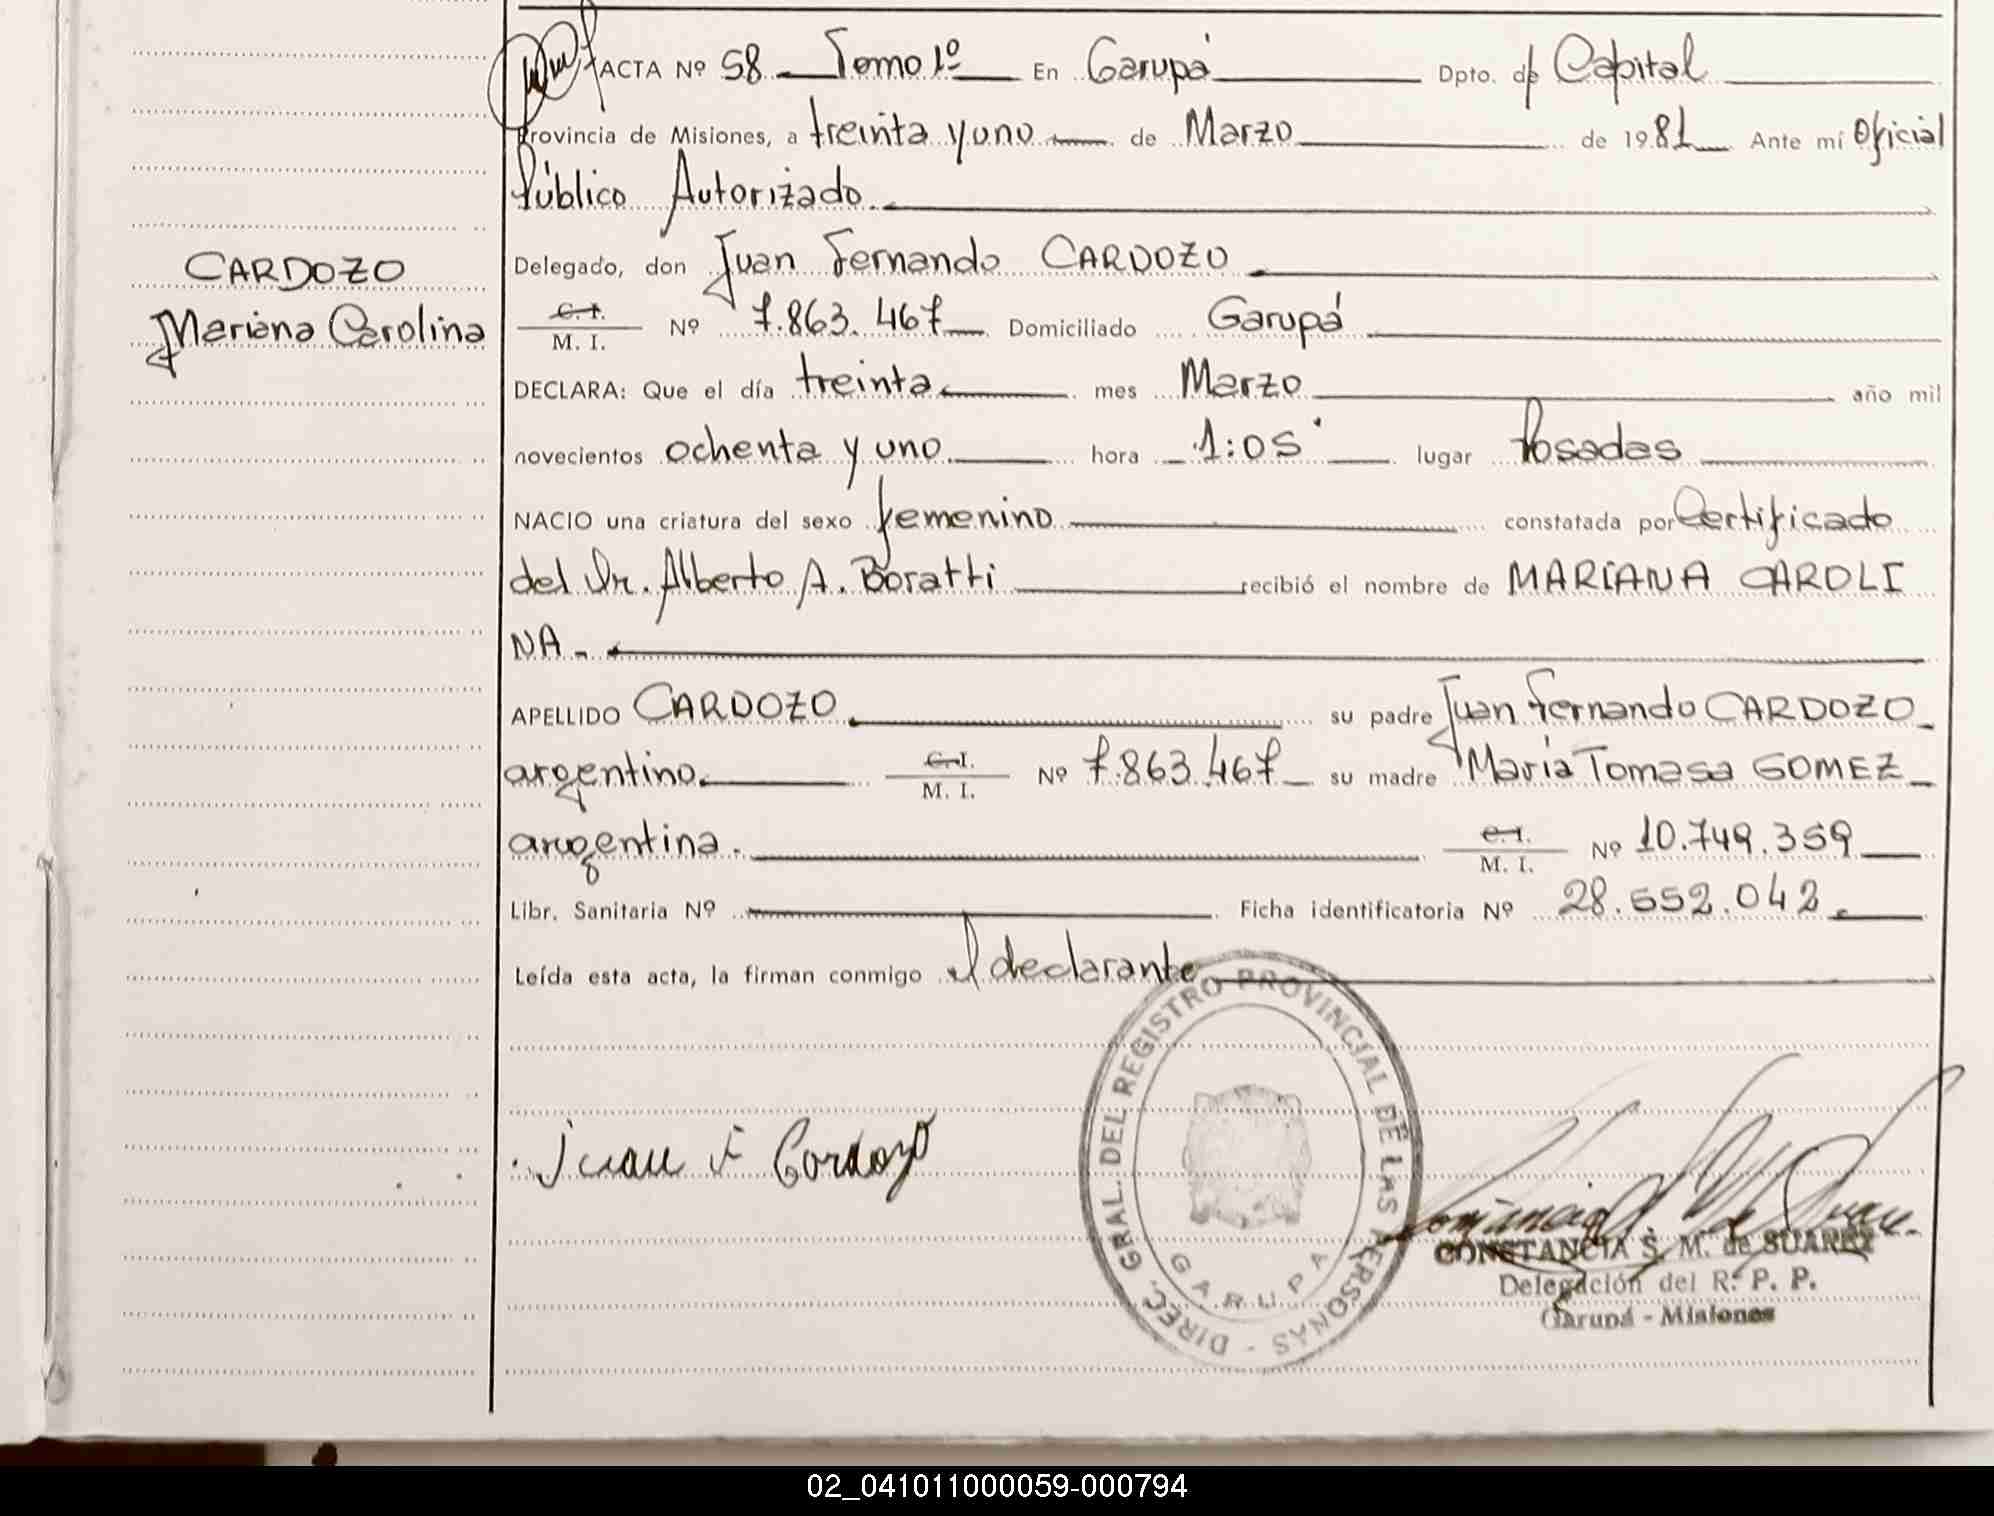 ACTA Nº 58 Tomo 1º En Garupá Dpto. de Capital
Provincia de Misiones, a treinta y uno de Marzo de 1981 Ante mí Oficial
Público Autorizado.
CARDOZO
Delegado, don Juan Fernando CARDOZO
Mariana Carolina
C.I. M. I. Nº 7.863.467 Domiciliado Garupá
DECLARA: Que el día treinta mes Marzo año mil
novecientos ochenta y uno hora 1:05 lugar Posadas
NACIO una criatura del sexo femenino constatada por Certificado
del Dr. Alberto A. Boratti recibió el nombre de MARIANA CAROLI
NA.
APELLIDO CARDOZO su padre Juan Fernando CARDOZO
argentino. C.I. M. I. Nº 7.863.467 su madre María Tomasa GOMEZ
argentina. C.I. M. I. Nº 10.749.359
Libr. Sanitaria Nº Ficha identificatoria Nº 28.552.042.
Leída esta acta, la firman conmigo el declarante
DIREC. GRAL. DEL REGISTRO PROVINCIAL DE LAS PERSONAS -
GARUPA
Juan F Cardozo
CONSTANCIA S. M. de SUAREZ
Delegación del R. P. P.
Garupá - Misiones
02_041011000059-000794